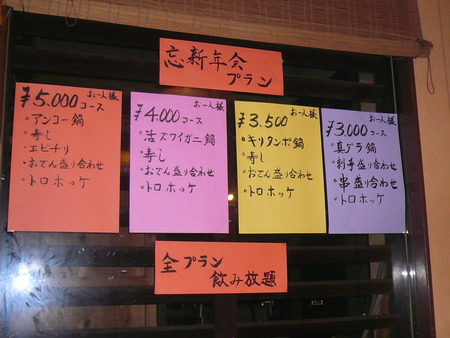 忘新年会
プラン
お一人様
¥5.000コース
・アンコー鍋
・寿し
・エビチリ
・おでん盛り合わせ
・トロホッケ
お一人様
¥4.000コース
・活ズワイガニ鍋
・寿し
・おでん盛り合わせ
・トロホッケ
お一人様
¥3.500
・キリタンポ鍋
・寿し
・おでん盛り合わせ
・トロホッケ
お一人様
¥3.000コース
・真ダラ鍋
・刺身盛り合わせ
・串盛り合わせ
・トロホッケ
全プラン
飲み放題